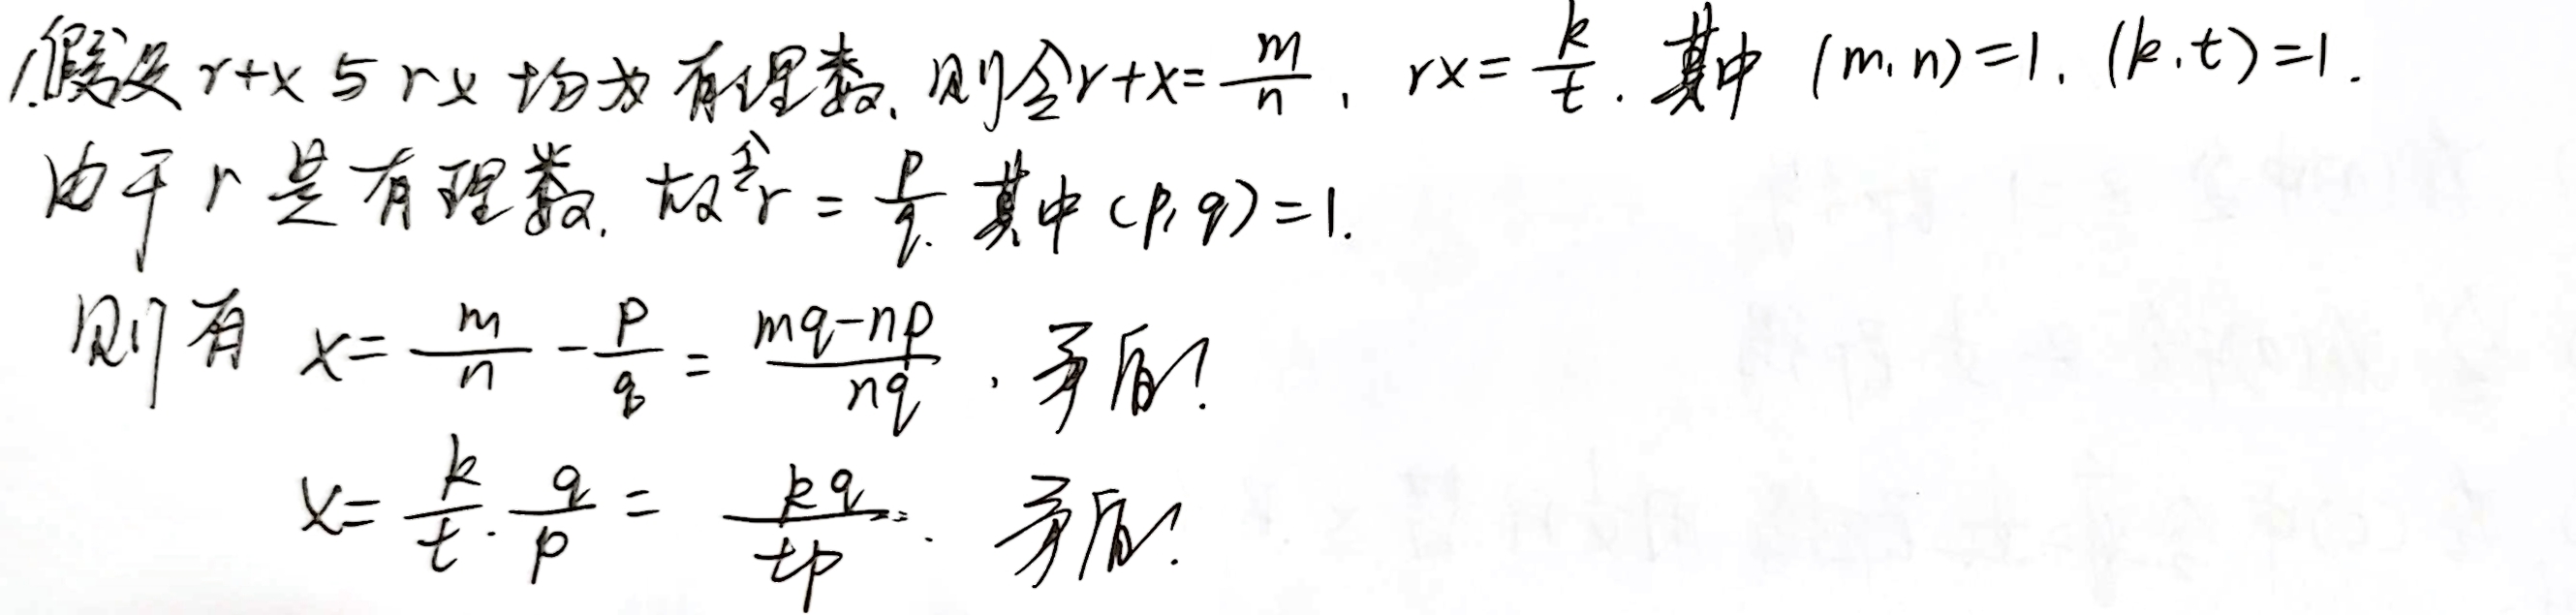 1.假设 r+x 与 rx 均为有理数, 则令 r+x = m/n, rx = k/t. 其中 (m, n) = 1, (k, t) = 1.
由于 r 是有理数, 故令 r = p/q. 其中 (p, q) = 1.
则有 x = m/n - p/q = (mq-np)/(nq). 矛盾!
x = k/t · q/p = kq/tp. 矛盾!